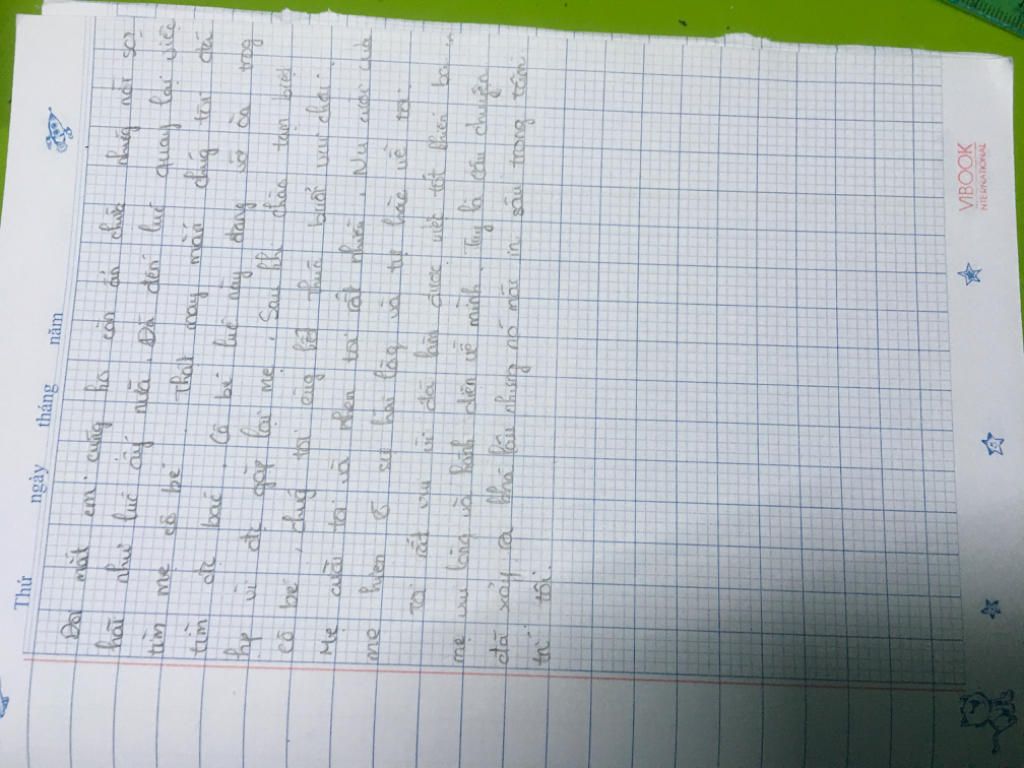 Thứ ngày tháng năm
Đôi mắt em cũng ko còn ẩn chứa những nỗi sợ
hãi như lúc ấy nữa. Đã đến lúc quay lại việc
tìm mẹ cô bé. Thật may mắn chúng tôi đã
tìm đc bác. Cô bé lúc này đang vỡ òa trog
hp vì đc gặp lại mẹ. Sau khi chào tạm biệt
cô bé, chúg tôi cũg kết thúc buổi vui chơi.
Mẹ cười tôi và khen tôi rất nhiều. Nụ cười của
mẹ hiện rõ sự hài lòng và tự hào về tôi.
Tôi rất vui vì đã làm được việc tốt khiến
mẹ vui lòng và hãnh diện về mình. Tuy là câu chuyện
đã xảy ra khá lâu nhưng nó mãi in sâu trong tâm
trí tôi.
VIBOOK
INTERNATIONAL